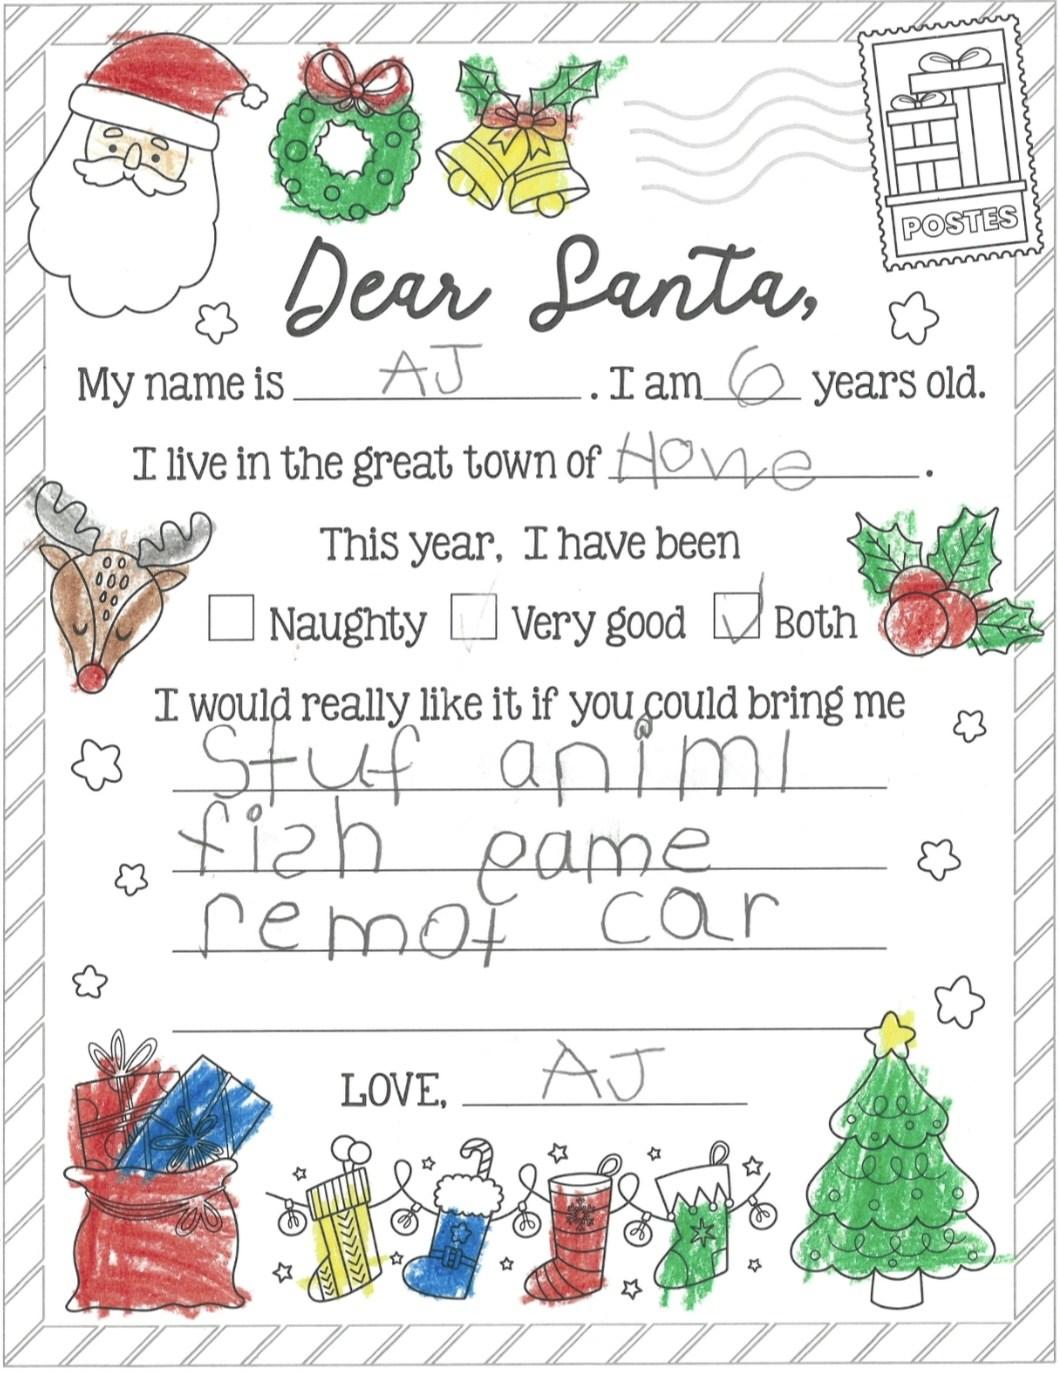 POSTES
Dear Santa,
My name is AJ. I am 6 years old.
I live in the great town of Hone.
This year, I have been
Naughty Very good Both
I would really like it if you could bring me
Stuf animl
fish game
remot car
LOVE, AJ